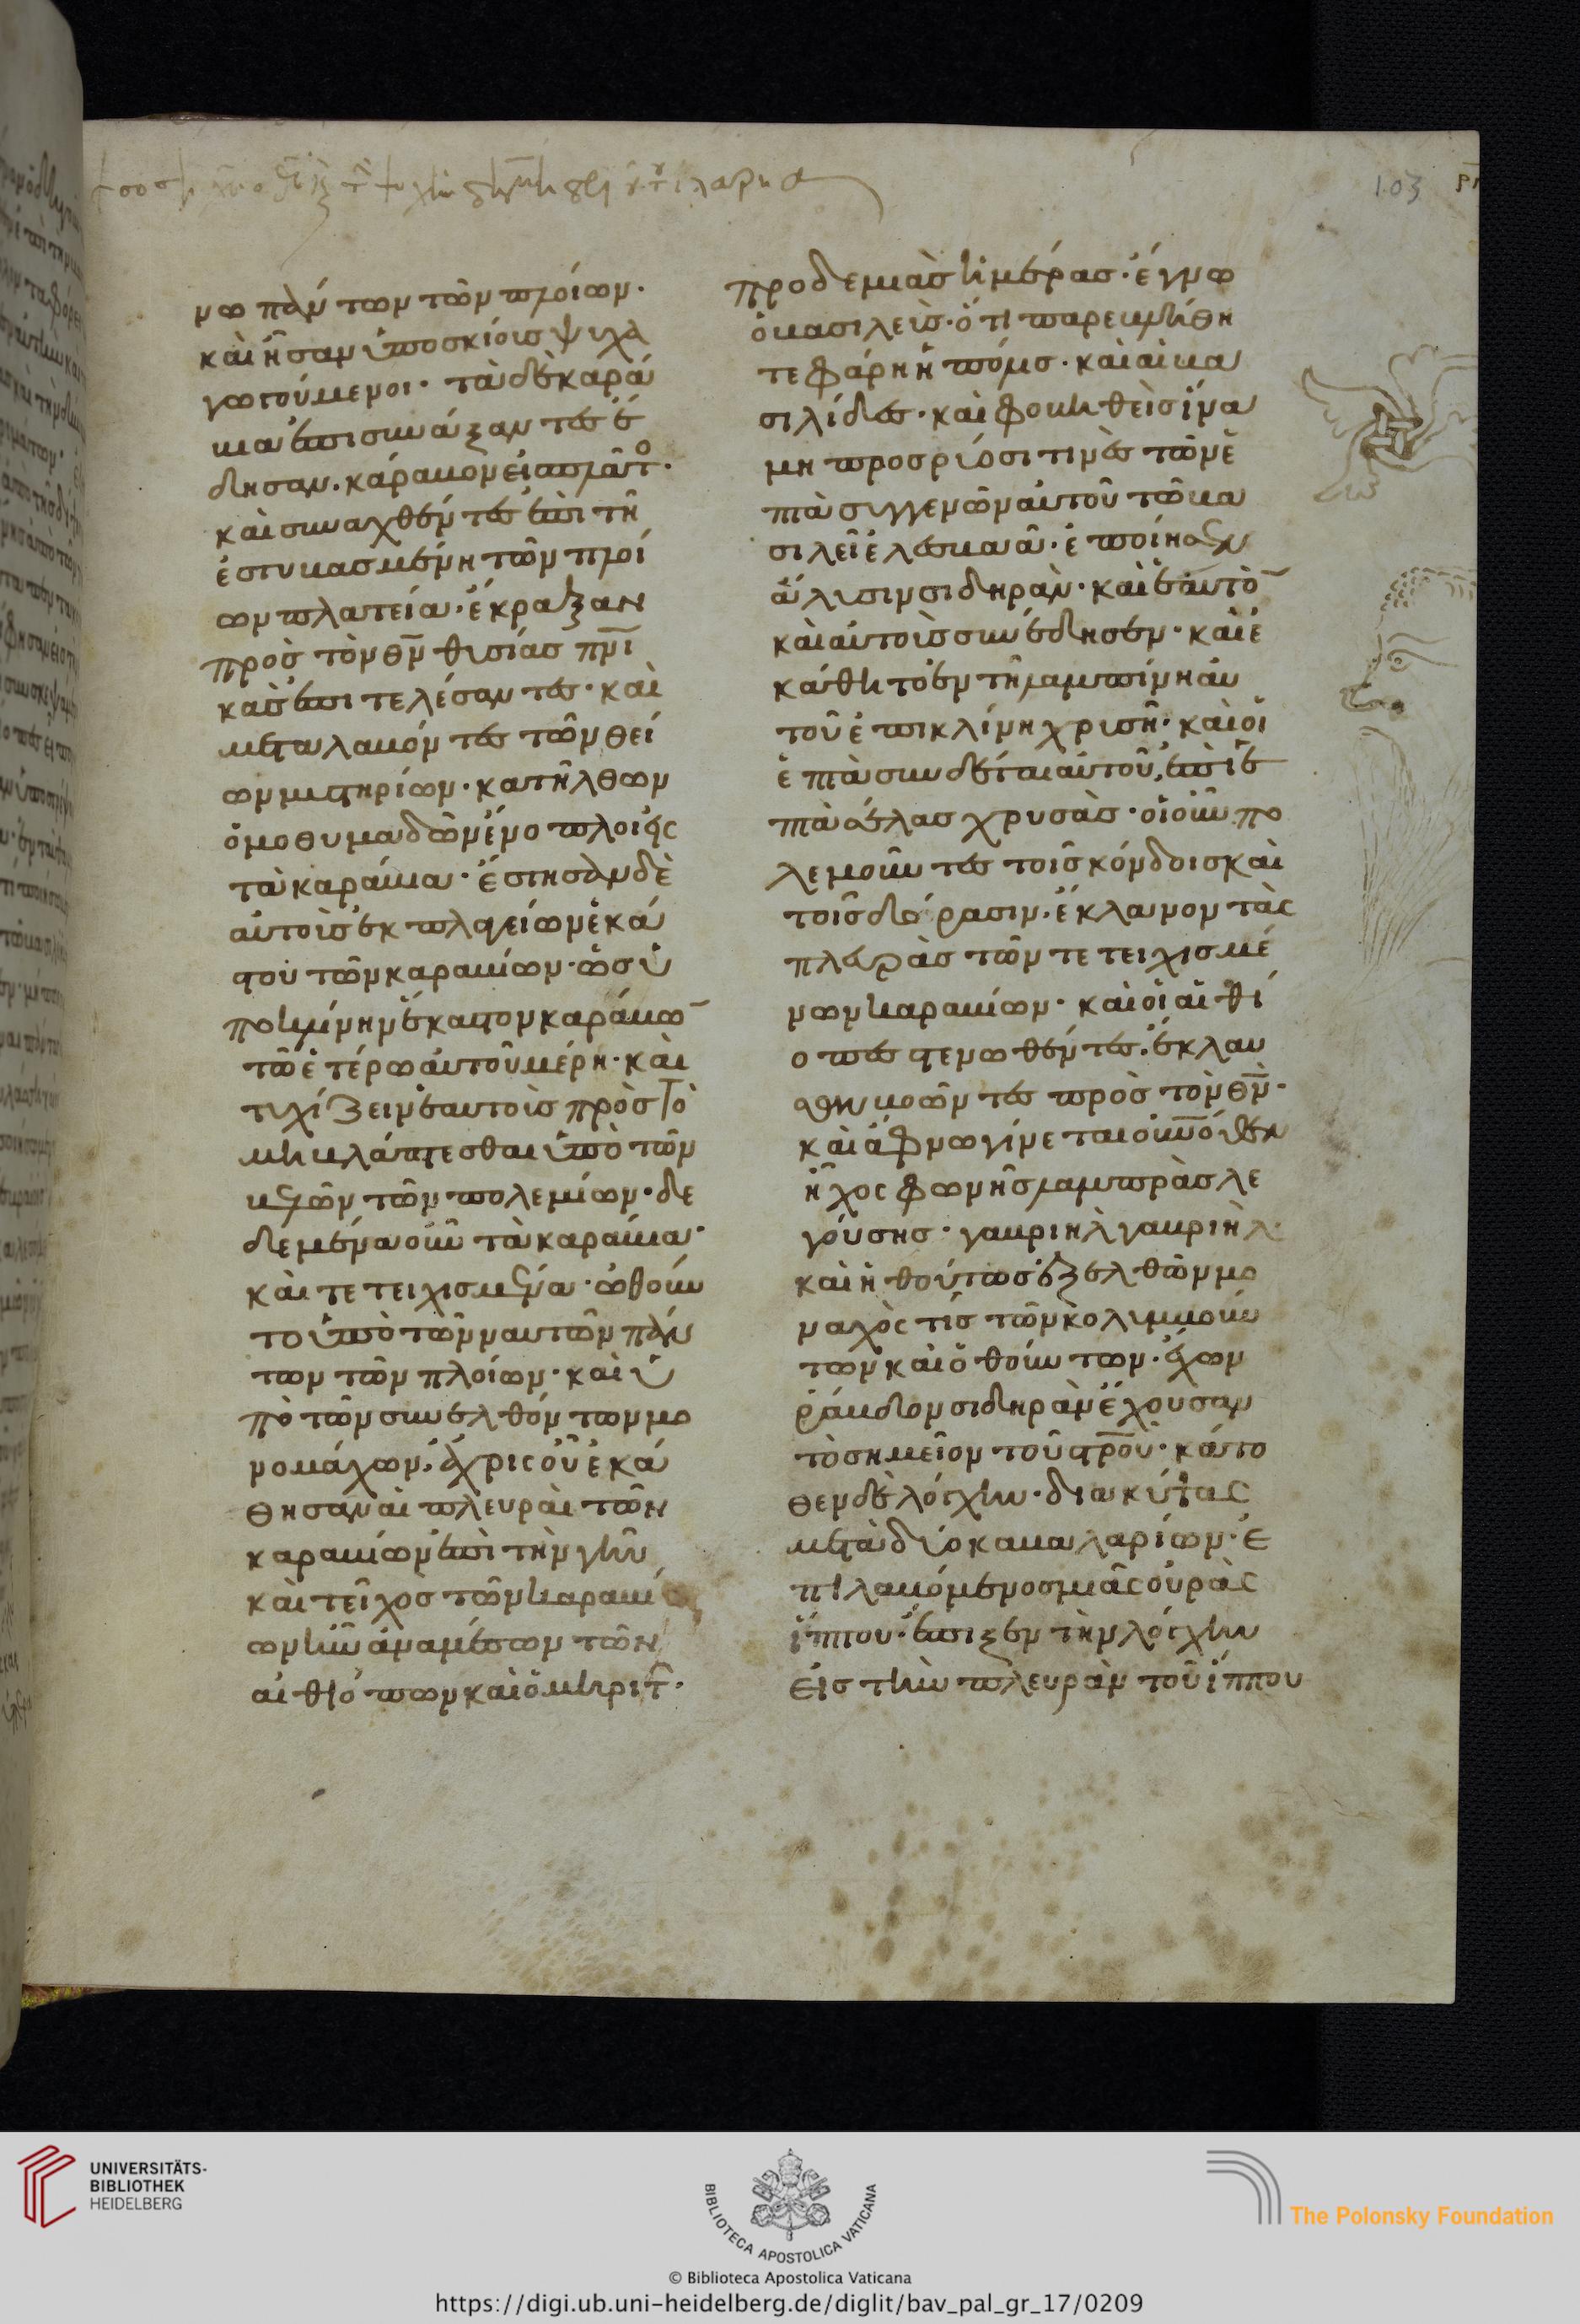 νω πάντων τῶν πλοίων·
καὶ ἦσαν ὑποσκίοις ψυχα
γωγούμενοι· τὰ δὲ καρά
βια ἐπισυνάξαντες ἔ
δησαν· κάραβον εἰς πλάτο·
καὶ συναχθέντες ἐπὶ τῆ
ἐστυβασμένη τῶν πλοί
ων πλατεία· ἔκραξαν
πρὸς τὸν θν̅ θυσίας πνι
κὰς ἐπιτελέσαντες· καὶ
μεταλαβόντες τῶν θεί
ων μυστηρίων· κατῆλθων
ὁμοθυμαδὼν ἔνοπλοι εἰς
τὰ καράβια· ἔστησαν δὲ
αὐτοῖς ἐκ πλατείων ἑκά
στου τῶν καραβίων· ὡς ὑ
ποκλίνην ἕκαστον κάραβω̅
τῶ ἑτέρω αὐτοῦ μέρη· καὶ
τυχίζειν ἑαυτοῖς πρὸς τὸ
μὴ βλάπτεσθαι ὑπὸ τῶν
βελῶν τῶν πολεμίων· δε
δεμένα οὖν τὰ καράβια·
καὶ τετειχισμένα· ὠθοῦν
το ὑπὸ τῶν ναυτῶν πάν
των τῶν πλοίων· καὶ ὑ
πὸ τῶν συνελθόντων μο
νομάχων· ἄχρις οὗ ἐκά
θησαν αἱ πλευραὶ τῶν
καραβίων ἐπὶ τὴν γῆν
καὶ τεῖχος τῶν καραβί
ων ἦν ἀναμέσων τῶν
αἰθιόπων καὶ ὁμηριτ̑·
103
πρὸ δὲ μιᾶς ἡμέρας· ἔγνω
ὁ βασιλεὺς· ὅτι παρεμβλήθη
τε φάρη ἢ πόμα· καὶ αἱ βα
σιλίδες· καὶ φοβηθεὶς ἵνα
μὴ προσρύσι τινὲς τῶν ἑ
πτὰ συγγενῶν αὐτοῦ τῶ βα
σιλεῖ ἐλεσβαᾶ· ἐποίησεν
ἅλυσιν σιδηρὰν· καὶ ἑαυτὸ̅
καὶ αὐτοὺς συνέδησεν· καὶ ἐ
κάθητο ἐν τῆ λαμπίνη αὐ
τοῦ ἐπὶ κλίνη χρυσῆ· καὶ οἱ
ἑπτὰ συνδέται αὐτοῦ, ἐπὶ ἑ
πτὰ σέλας χρυσὰς· οἱ οὖν πο
λεμοῦντες τοῖς κόνδοις καὶ
τοῖς δόρασιν· ἔκλανον τὰς
πλευρὰς τῶν τετειχισμέ
νων καραβίων· καὶ οἱ αἰθί
οπες στενωθέντες· ἔκλαυ
σαν βοῶντες πρὸς τὸν θν̅·
καὶ ἄφνω γίνεται οὐνόθεν
ἦχος φωνῆς λαμπρὰς λε
γούσης· γαβριὴλ γαβριὴλ
καὶ ἠθούπως ἐξελθὼν μο
ναχὸς τίς τῶν κολυμβούν
των καὶ ὀθούντων· ἔχων
ῥάβδον σιδηρὰν ἔχουσαν
τὸ σημεῖον τοῦ στρο̅ῦ· κάτο
θεν δὲ λόγχην· διακύτας
μετὰ δύο καβαλαρίων· ἐ
πιλαβόμενος μιᾶς οὐρὰς
ἵππου· ἔπιξεν τὴν λόγχην
εἰς τὴν πλευρὰν τοῦ ἵππου
UNIVERSITÄTS-
BIBLIOTHEK
HEIDELBERG
BIBLIOTECA APOSTOLICA VATICANA
The Polonsky Foundation
© Biblioteca Apostolica Vaticana
https://digi.ub.uni-heidelberg.de/diglit/bav_pal_gr_17/0209